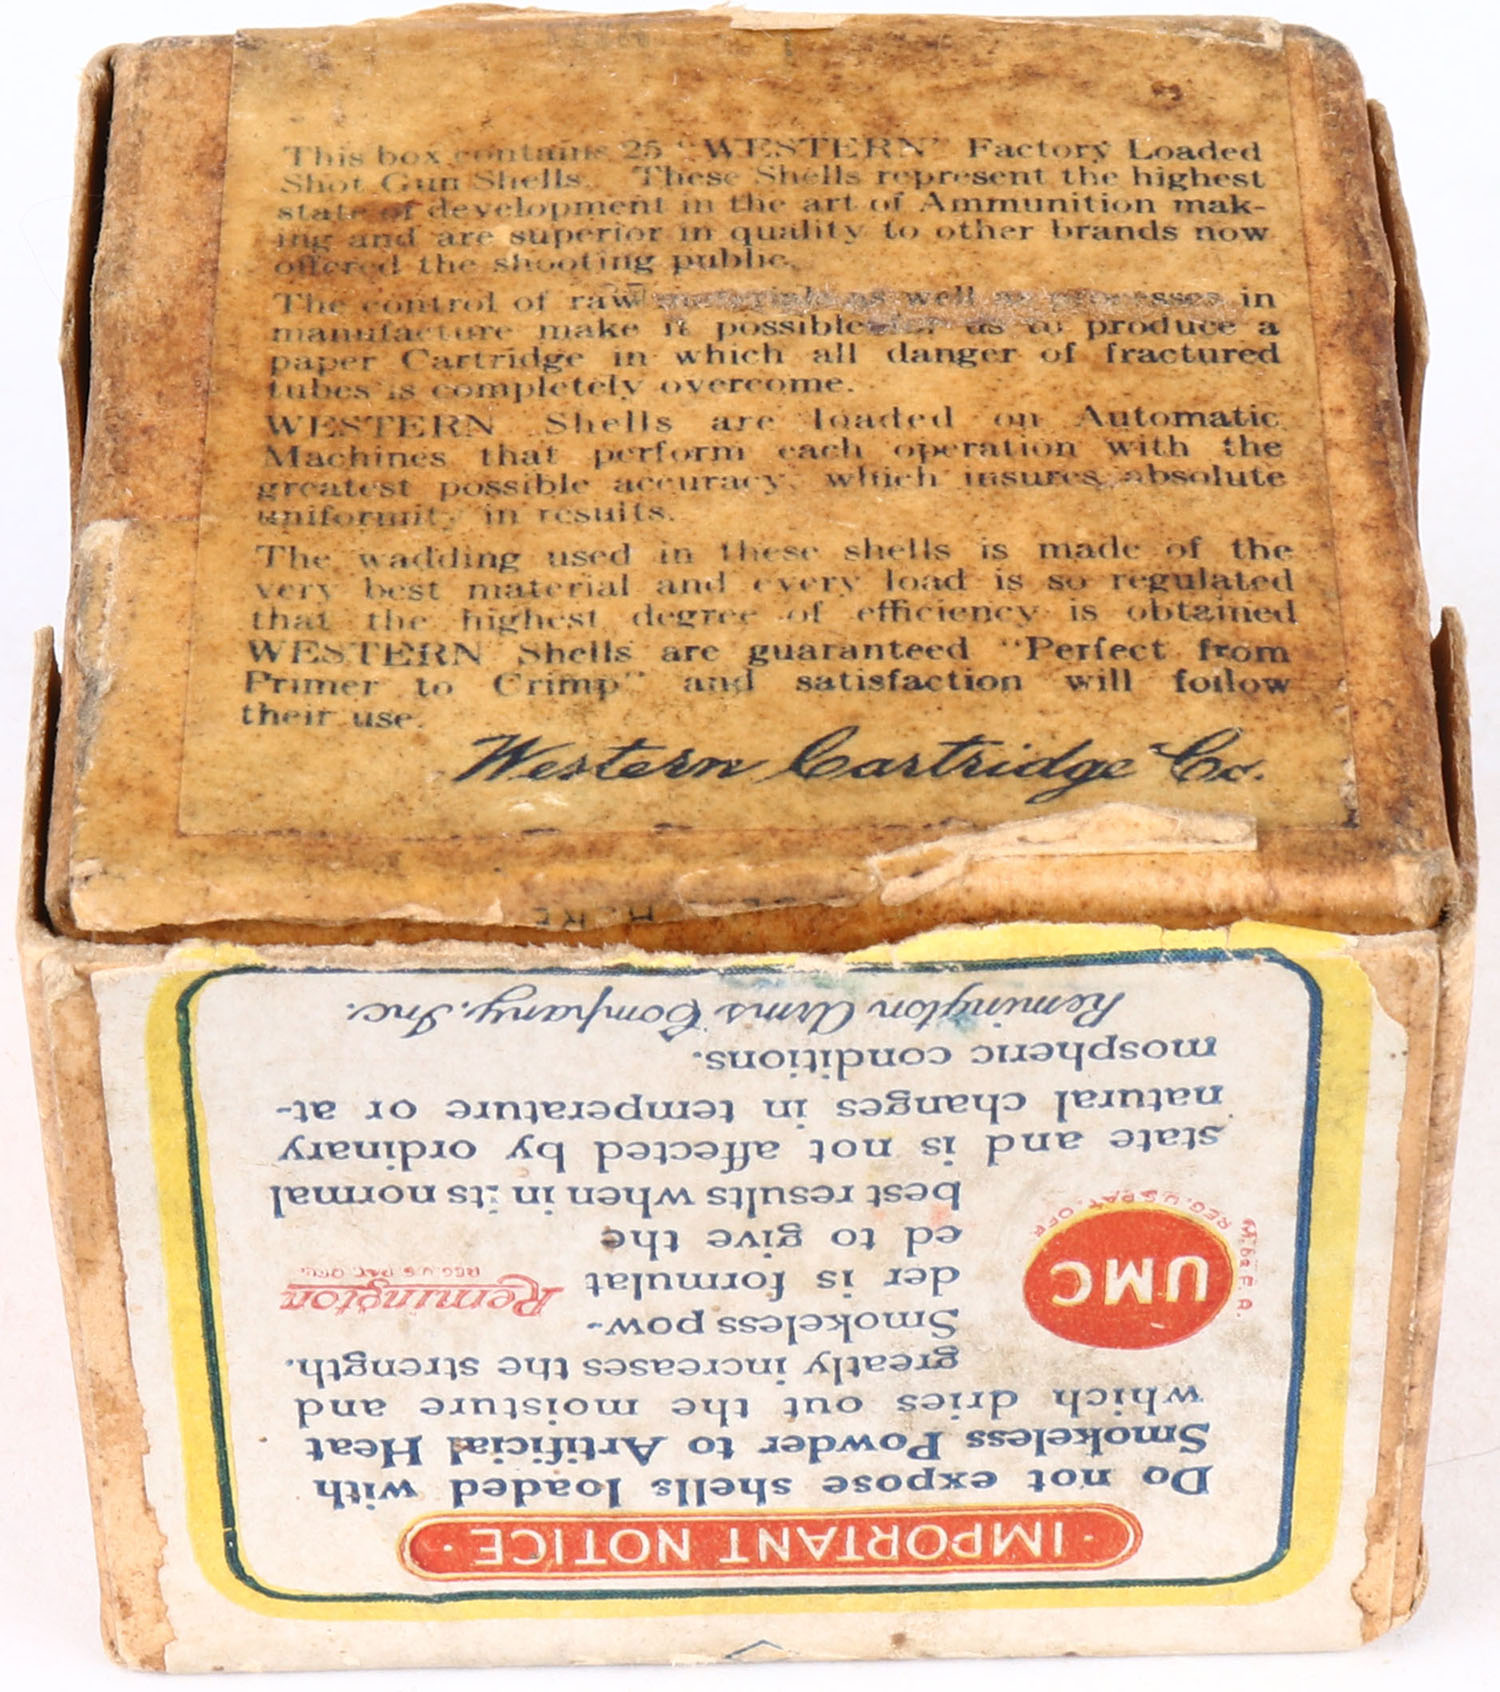 This box contains 25 "WESTERN" Factory Loaded
Shot Gun Shells. These Shells represent the highest
state of development in the art of Ammunition mak-
ing and are superior in quality to other brands now
offered the shooting public.
The control of raw materials as well as processes in
manufacture make it possible for us to produce a
paper Cartridge in which all danger of fractured
tubes is completely overcome.
WESTERN Shells are loaded on Automatic
Machines that perform each operation with the
greatest possible accuracy, which insures absolute
uniformity in results.
The wadding used in these shells is made of the
very best material and every load is so regulated
that the highest degree of efficiency is obtained
WESTERN Shells are guaranteed "Perfect from
Primer to Crimp" and satisfaction will follow
their use.
Western Cartridge Co.
· IMPORTANT NOTICE ·
Do not expose shells loaded with
Smokeless Powder to Artificial Heat
which dries out the moisture and
greatly increases the strength.
Smokeless pow-
der is formulat
ed to give the
best results when in its normal
state and is not affected by ordinary
natural changes in temperature or at-
mospheric conditions.
Remington Arms Company, Inc.
UMC
REG. U.S. PAT. OFF.
M. by F. A.
Remington
REG. U.S. PAT. OFF.